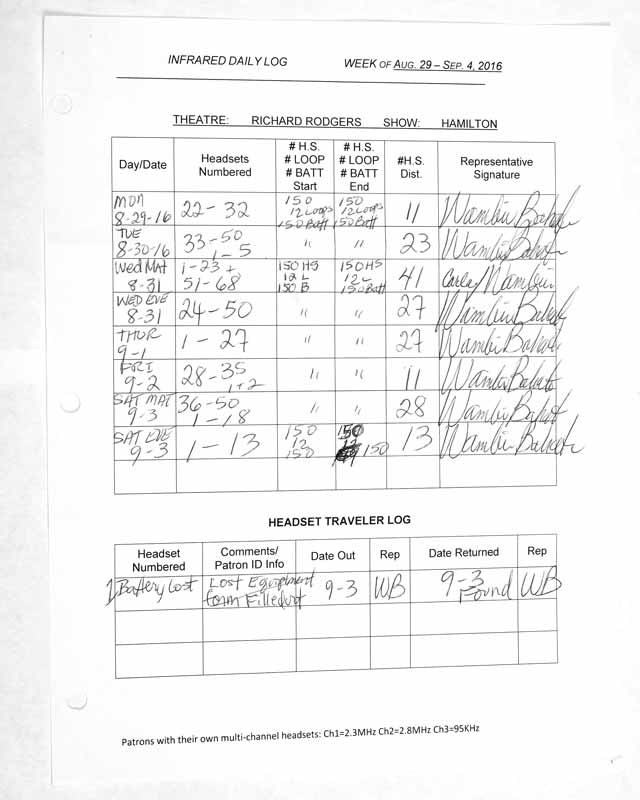 INFRARED DAILY LOG WEEK OF AUG. 29 – SEP. 4, 2016
THEATRE: RICHARD RODGERS SHOW: HAMILTON
Day/Date
Headsets
Numbered
# H.S.
# LOOP
# BATT
Start
# H.S.
# LOOP
# BATT
End
#H.S.
Dist.
Representative
Signature
MON
8-29-16
22-32
150
12 Loops
150 Batt
150
12 Loops
150 Batt
11
Wambui
TUE
8-30-16
33-50
1-5
" "
23
Wambui
Wed MAT
8-31
1-23 +
51-68
150 HS
12 L
150 B
150 HS
12 L
150 Batt
41
Carley/Wambui
WED EVE
8-31
24-50
" "
27
Wambui
THUR
9-1
1-27
" "
27
Wambui
FRI
9-2
28-35
1+2
" "
11
Wambui
SAT MAT
9-3
36-50
1-18
" "
28
Wambui
SAT EVE
9-3
1-13
150
12
150
150
12
150
13
Wambui
HEADSET TRAVELER LOG
Headset
Numbered
Comments/
Patron ID Info
Date Out
Rep
Date Returned
Rep
1 Battery Lost
Lost Equipment
form Filled out
9-3
WB
9-3
Found
WB
Patrons with their own multi-channel headsets: Ch1=2.3MHz Ch2=2.8MHz Ch3=95KHz